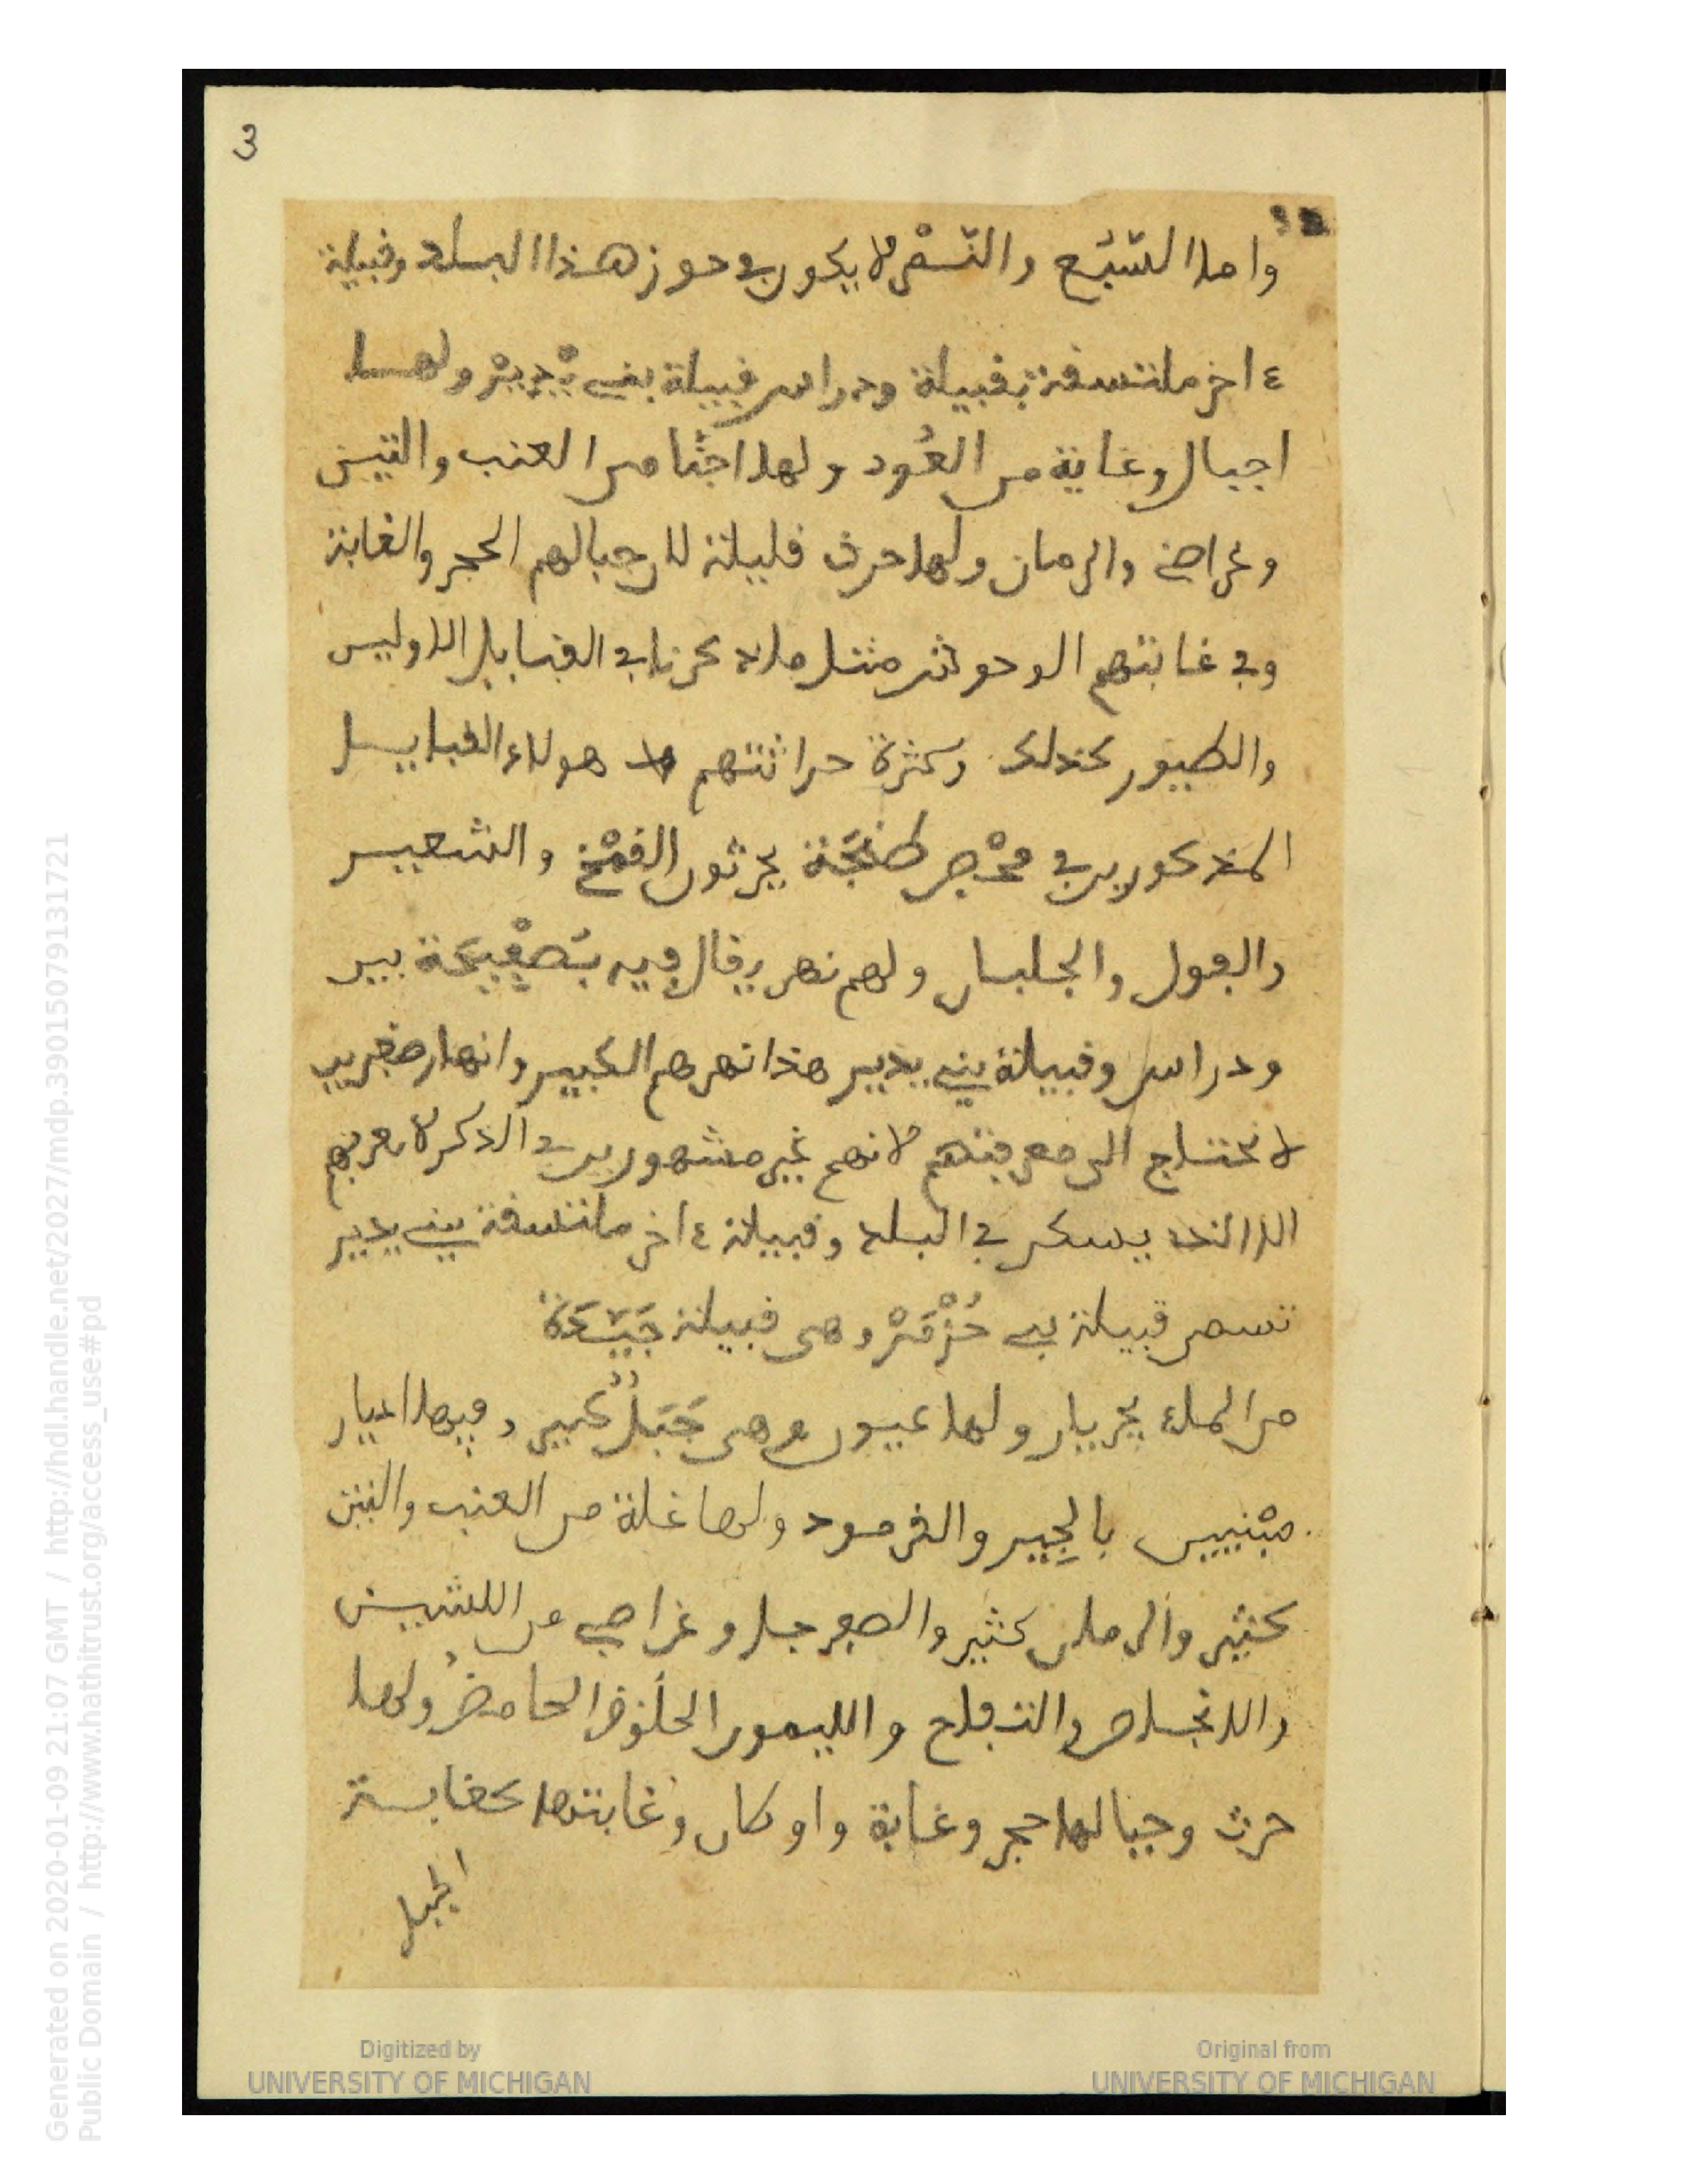 3
واما السّبُع والنّمْر لا يكون في حوز هذا البلد وقبيلة
ءاخر ملتسقة بقبيلة ودراس قبيلة بني يْديرْ ولها
اجبال وغابة من العُود ولها اجنّا من العنب والتين
وغراصي والرمان ولها حرث قليلة لان جبالهم الحجر والغابة
وفي غابتهم الوحوش مثل ما ذكرنا في القبايل الاولين
والطيور كذلك وكثرة حراثتهم هولاء القبايل
المذكورين في فحْص طنْجَة يحرثون القمْح والشعير
والفول والجلبان ولهم نهر يقال فيه بُصفِيحَة بين
ودراس وقبيلة بني يدير هذا نهرهم الكبير وانهار صغيرين
لا نحتاج الى معرفتهم لانهم غير مشهورين في الذكر لا يعرفهم
الا الذي يسكن في البلد وقبيلة ءاخر ملتسقة بني يدير
تسمى قبيلة بني حُزْمَرْ وهي قبيلة جَيّدَة
من الماء يجريان ولها عيون وهي جَبَلٌ كبير وفيها اديار
مبْنيين بالجِير والقرمود ولها غلة من العنب والتين
كثير والرمان كثير والصفرجل وغراصي من اللشين
والانجاص والتفاح والليمون الحلُو والحامضُ ولها
حرث وجبالها حجر وغابة واوكان وغابتها كغابة
الجبل
Digitized by
UNIVERSITY OF MICHIGAN
Original from
UNIVERSITY OF MICHIGAN
Generated on 2020-01-09 21:07 GMT / http://hdl.handle.net/2027/mdp.39015079131721
Public Domain / http://www.hathitrust.org/access_use#pd